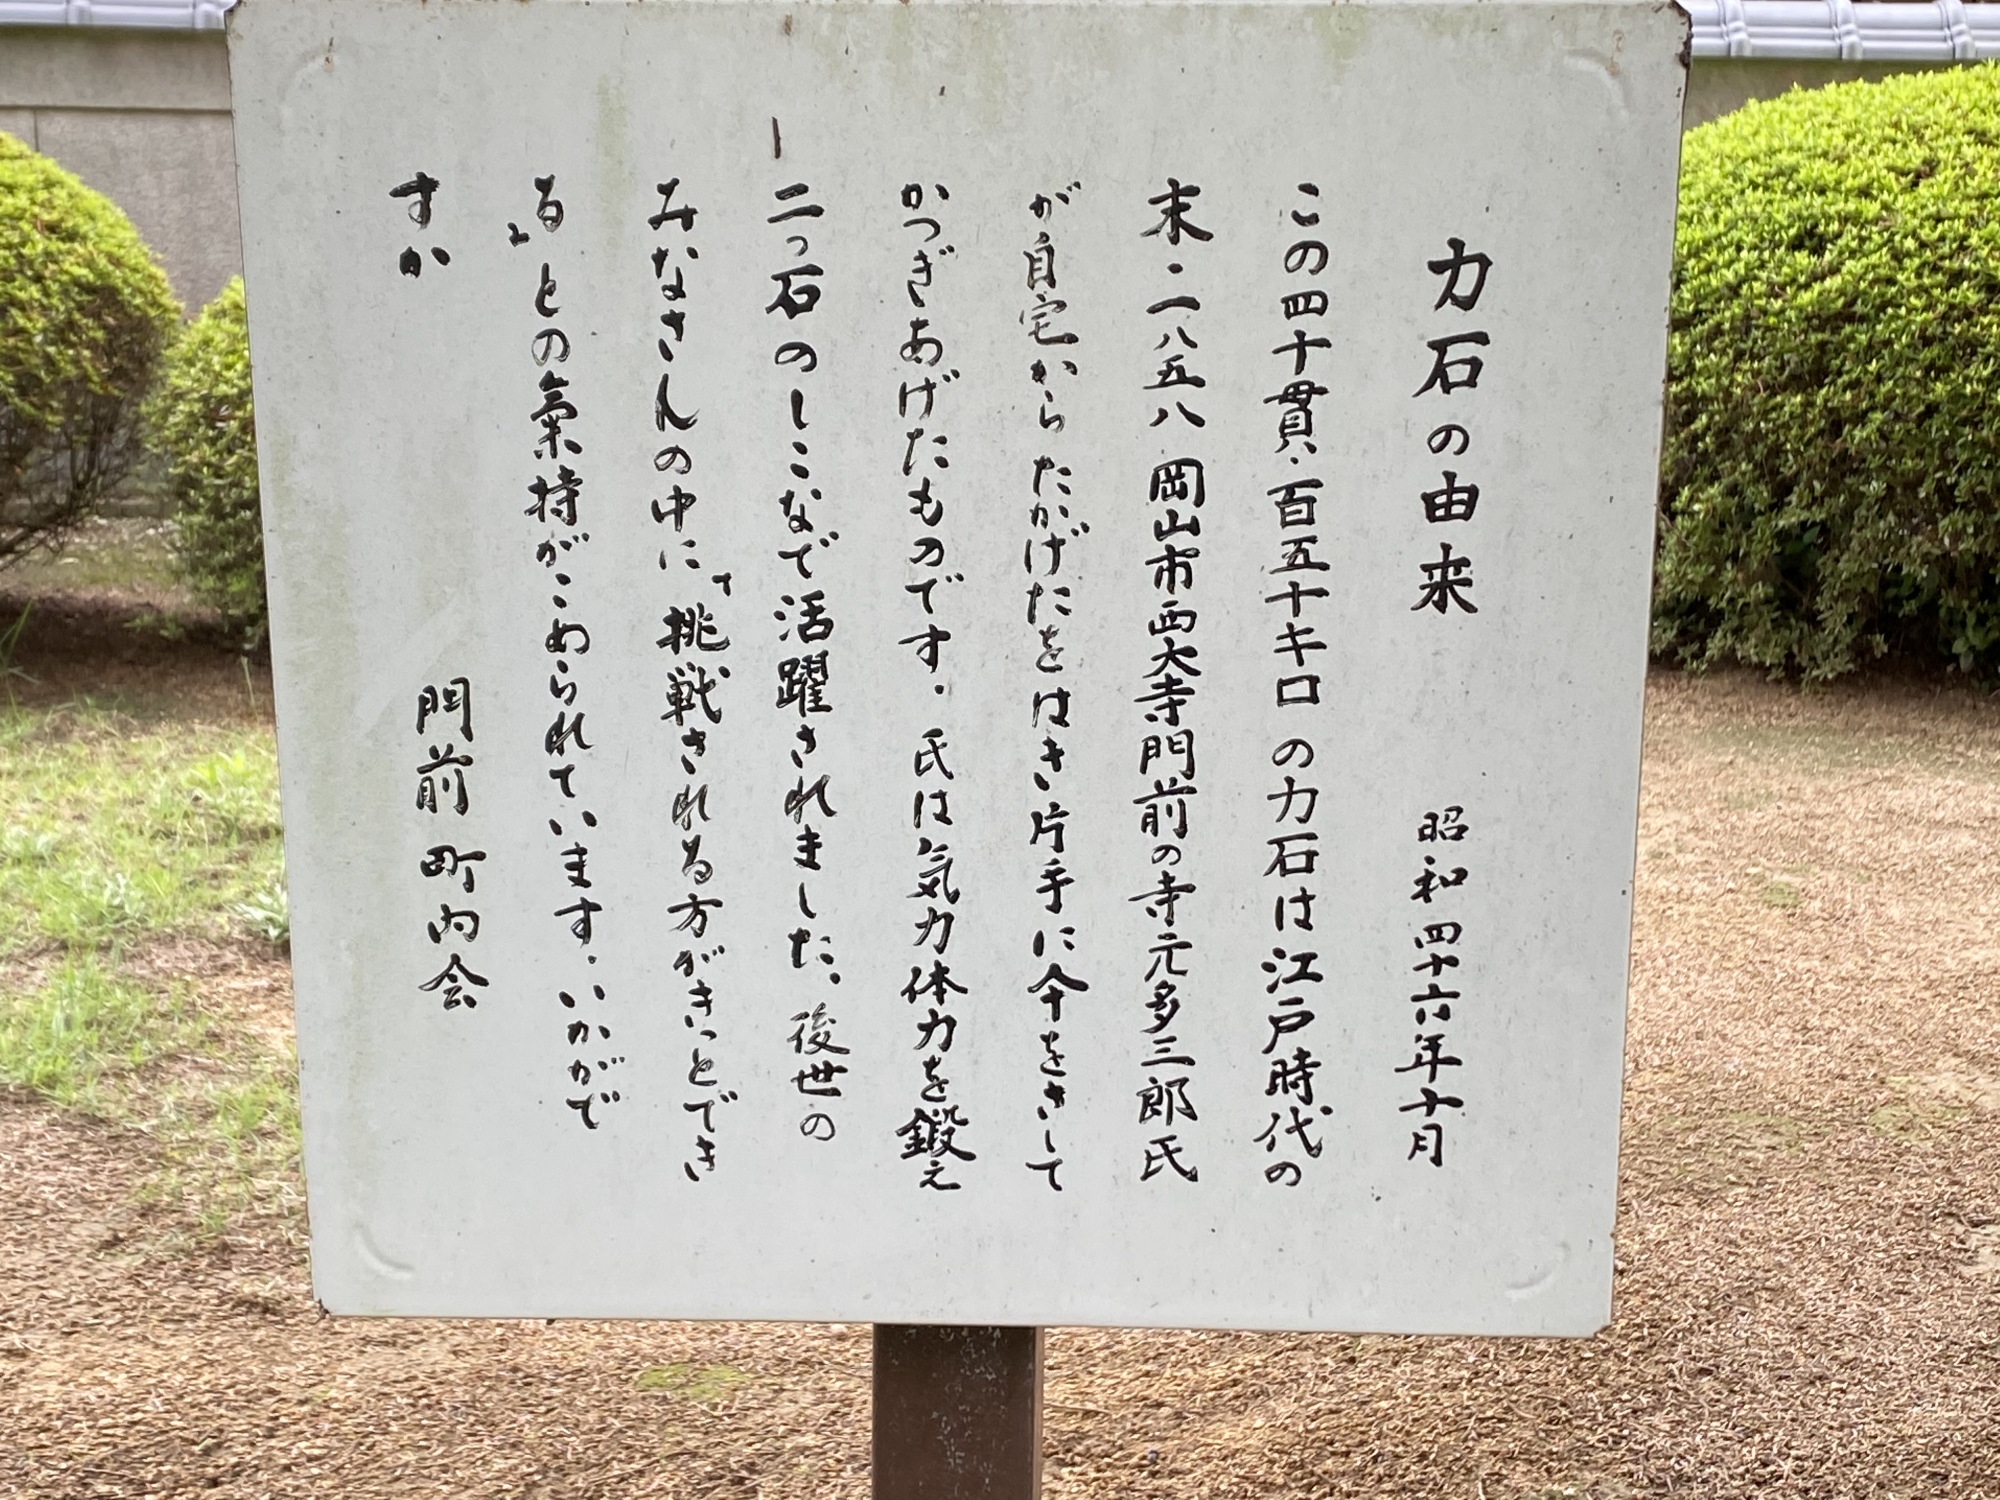 力石の由来　昭和四十六年十月
この四十貫・百五十キロの力石は江戸時代の
末・一八五八 岡山市西大寺門前の寺元多三郎氏
が自宅からたかげたをはき片手に傘をさして
かつぎあげたものです。氏は気力体力を鍛え
二つ石のしこなで活躍されました。後世の
みなさんの中に「挑戦される方がきっとでき
る」との氣持がこめられています。いかがで
すか
門前町内会